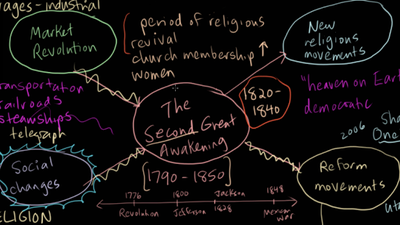 ages - industrial
Market
Revolution
period of religious
revival
church membership ↑
women
New
religious
movements
transportation
railroads
steamships
telegraph
The
Second Great
Awakening
1820-
1840
"heaven on Eart
democratic
2006
Sha
One
Social
changes
[1790 - 1850]
Reform
movements
1776
1800
Jackson
1848
Revolution
Jefferson
1828
Mexican
war
ELIGION
Uta